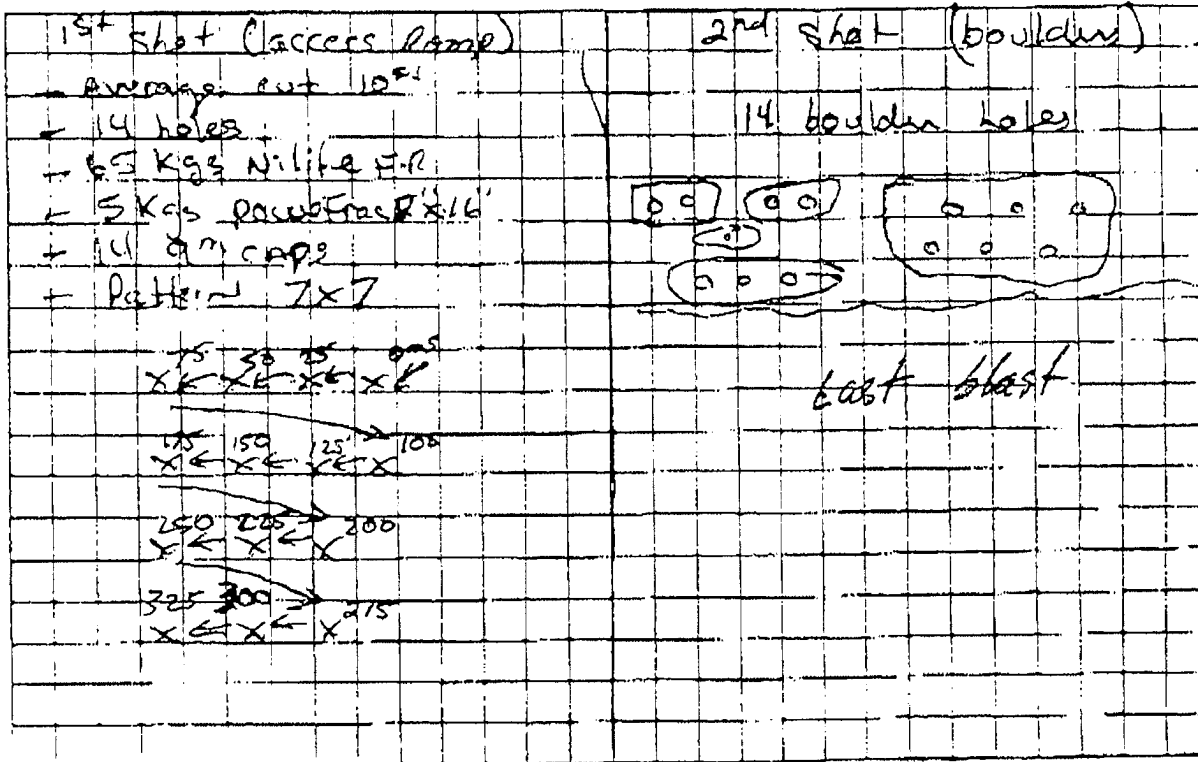 1st Shot (access Ramp)
- Average cut 10
- 14 holes
- 65 Kgs Nilite F.R
- 5 Kgs powerfrac 2"x16"
- 14 9m caps
- Pattern 7x7
75 50 25 0ms
X ← X ← X ← X
175 150 125 100
X ← X ← X ← X
250 225 200
X ← X ← X
325 300 275
X ← X ← X
2nd Shot (boulders)
14 boulder holes
Last blast